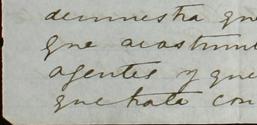 demuestra que
que acostum
agentes y que
que trata con